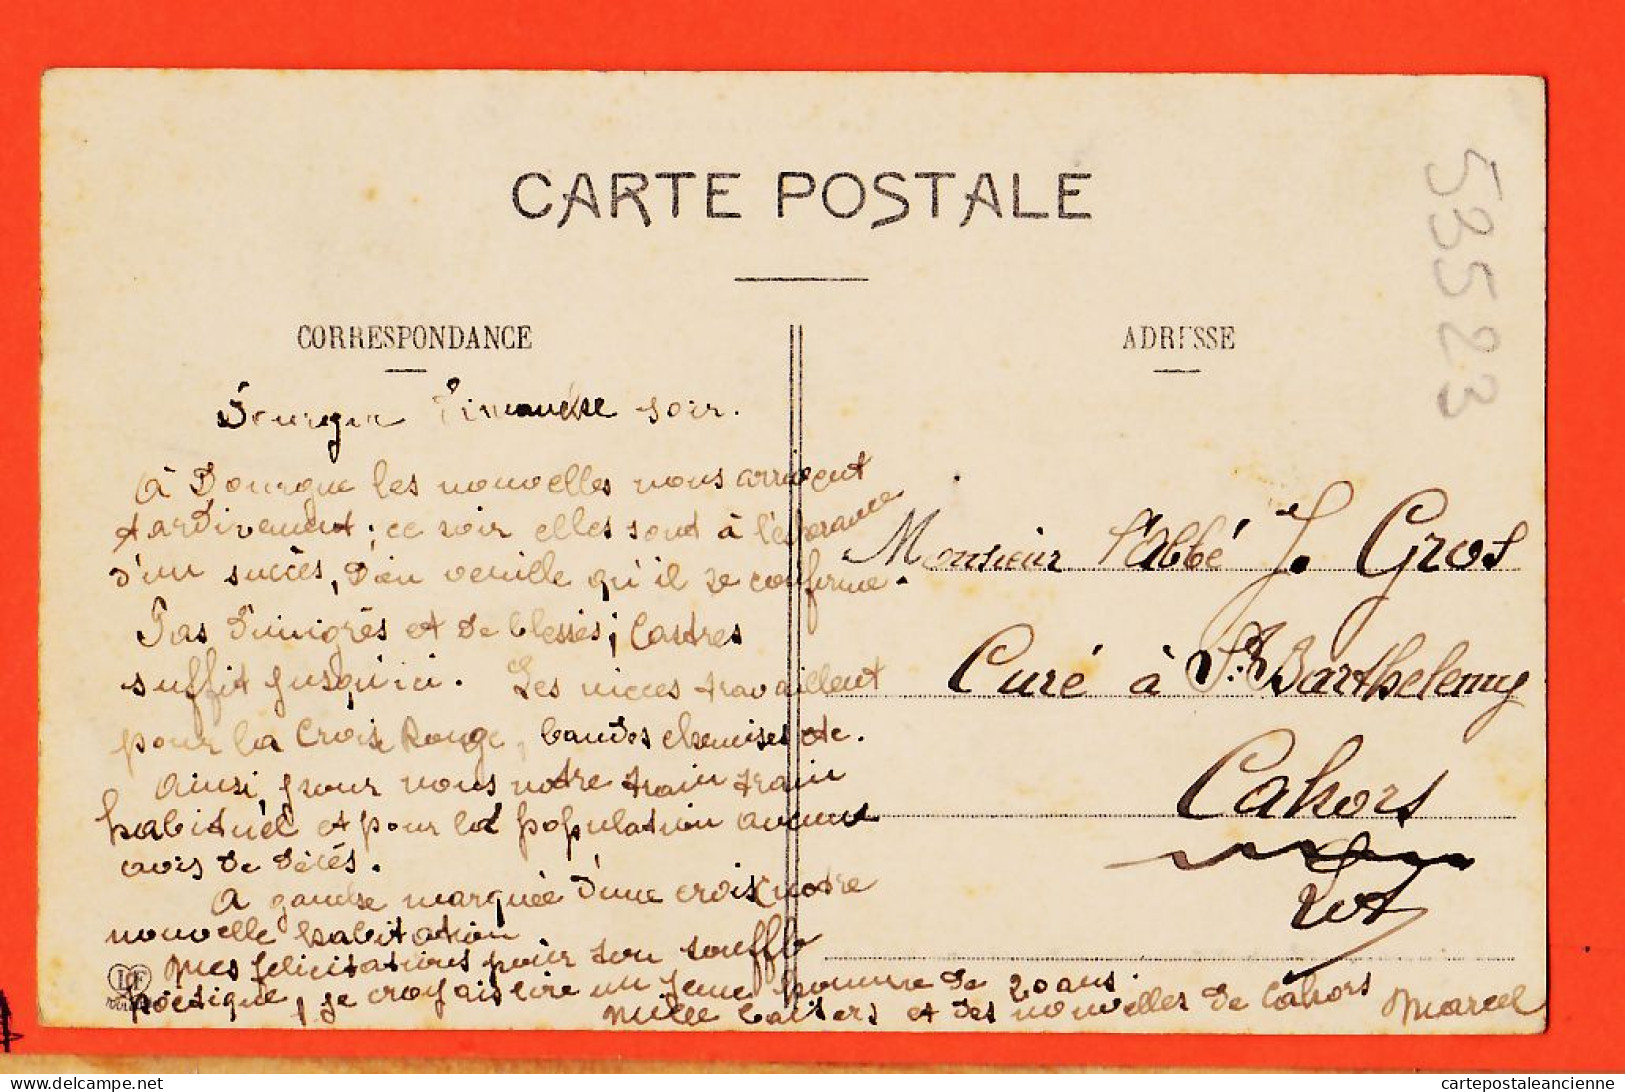 CARTE POSTALE
53523
CORRESPONDANCE
Dourgne Dimanche soir.
À Dourgne les nouvelles nous arrivent
tardivement ; ce soir elles sont à l'espérance
d'un succès, Dieu veuille qu'il se confirme.
Pas d'émigrés et de blessés ; Castres
suffit jusqu'ici. Les nièces travaillent
pour la Croix Rouge, bandes chemises etc.
Ainsi, pour nous notre train train
habituel et pour la population aucun
avis de décès.
A gauche marquée d'une croix notre
nouvelle habitation
Mes félicitations pour ton souffle
poétique, je croyais lire un jeune homme de 20 ans.
Mille baisers et des nouvelles de Cahors
Marcel
LF
ADRESSE
Monsieur l'Abbé J. Gros
Curé à St Barthelemy
Cahors
Lot
cartepostaleancienne
cartepostaleancienne.com